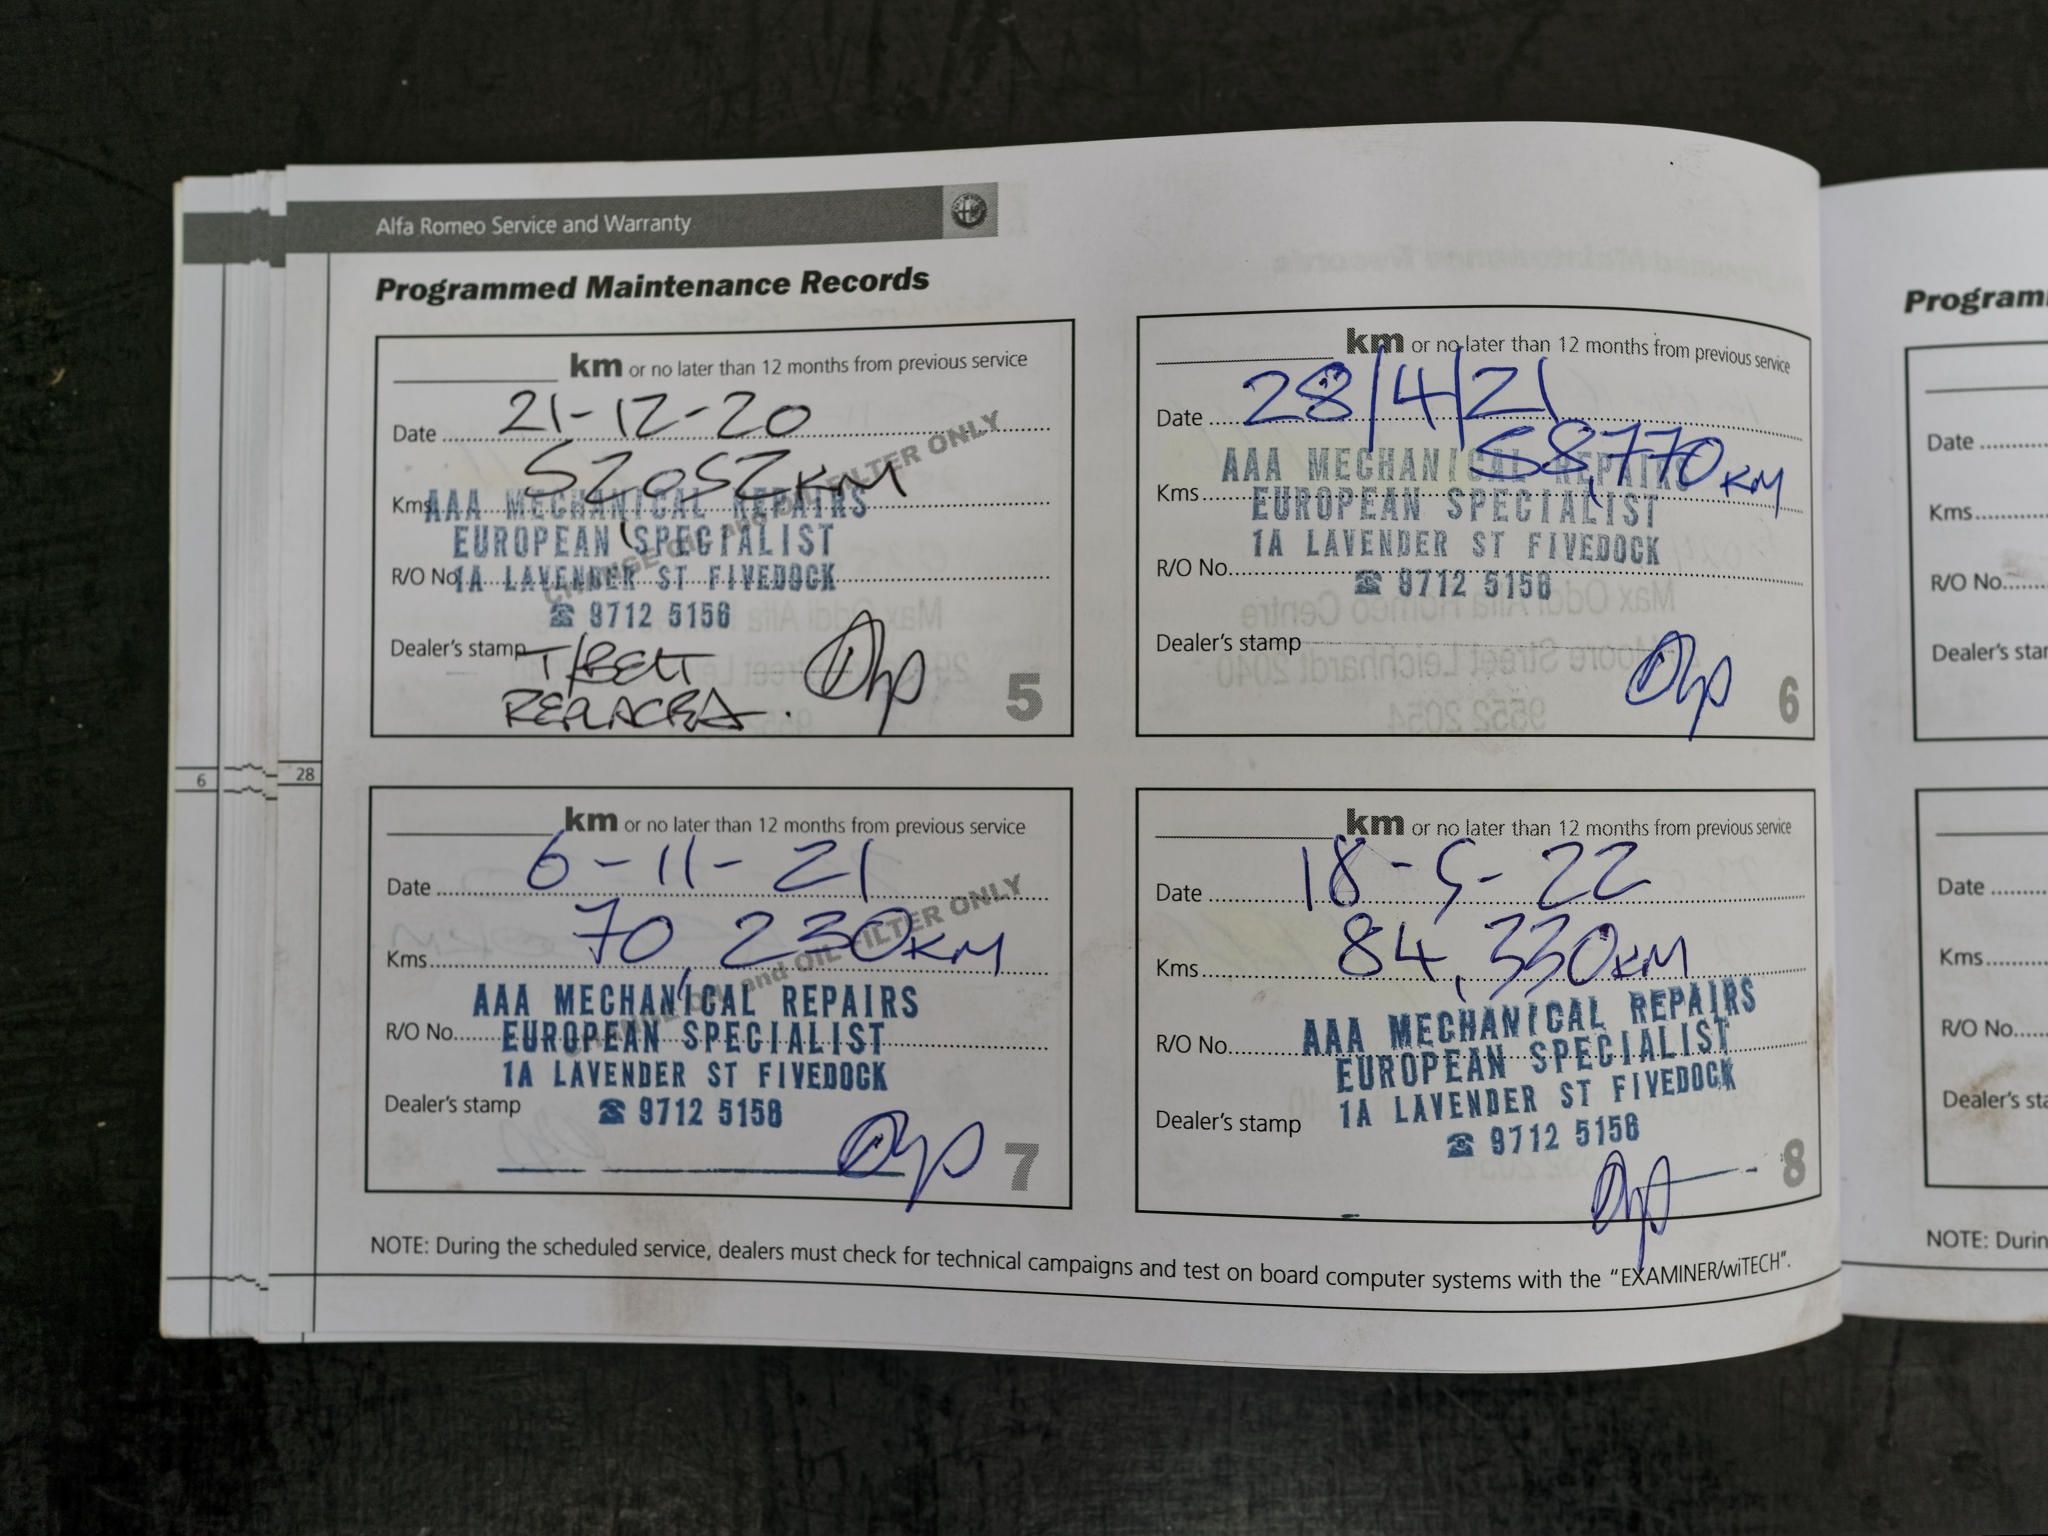 Alfa Romeo Service and Warranty
Programmed Maintenance Records
km or no later than 12 months from previous service
Date 21-12-20
Kms 52,052KM
CHANGE OIL and OIL FILTER ONLY
AAA MECHANICAL REPAIRS
EUROPEAN SPECIALIST
R/O No.
1A LAVENDER ST FIVEDOCK
☎ 9712 5156
Dealer's stamp
T/BELT
REPLACED.
5
km or no later than 12 months from previous service
Date 28/4/21
Kms 58,770KM
AAA MECHANICAL REPAIRS
EUROPEAN SPECIALIST
1A LAVENDER ST FIVEDOCK
R/O No.
☎ 9712 5156
Dealer's stamp
6
6
28
km or no later than 12 months from previous service
Date 6-11-21
Kms 70,230KM
CHANGE OIL and OIL FILTER ONLY
AAA MECHANICAL REPAIRS
R/O No.
EUROPEAN SPECIALIST
1A LAVENDER ST FIVEDOCK
Dealer's stamp
☎ 9712 5156
7
km or no later than 12 months from previous service
Date 18-5-22
Kms 84,330KM
AAA MECHANICAL REPAIRS
R/O No.
EUROPEAN SPECIALIST
1A LAVENDER ST FIVEDOCK
Dealer's stamp
☎ 9712 5156
8
NOTE: During the scheduled service, dealers must check for technical campaigns and test on board computer systems with the "EXAMINER/wiTECH".
Date
Kms
R/O No.
Date
Kms
R/O No.
NOTE: